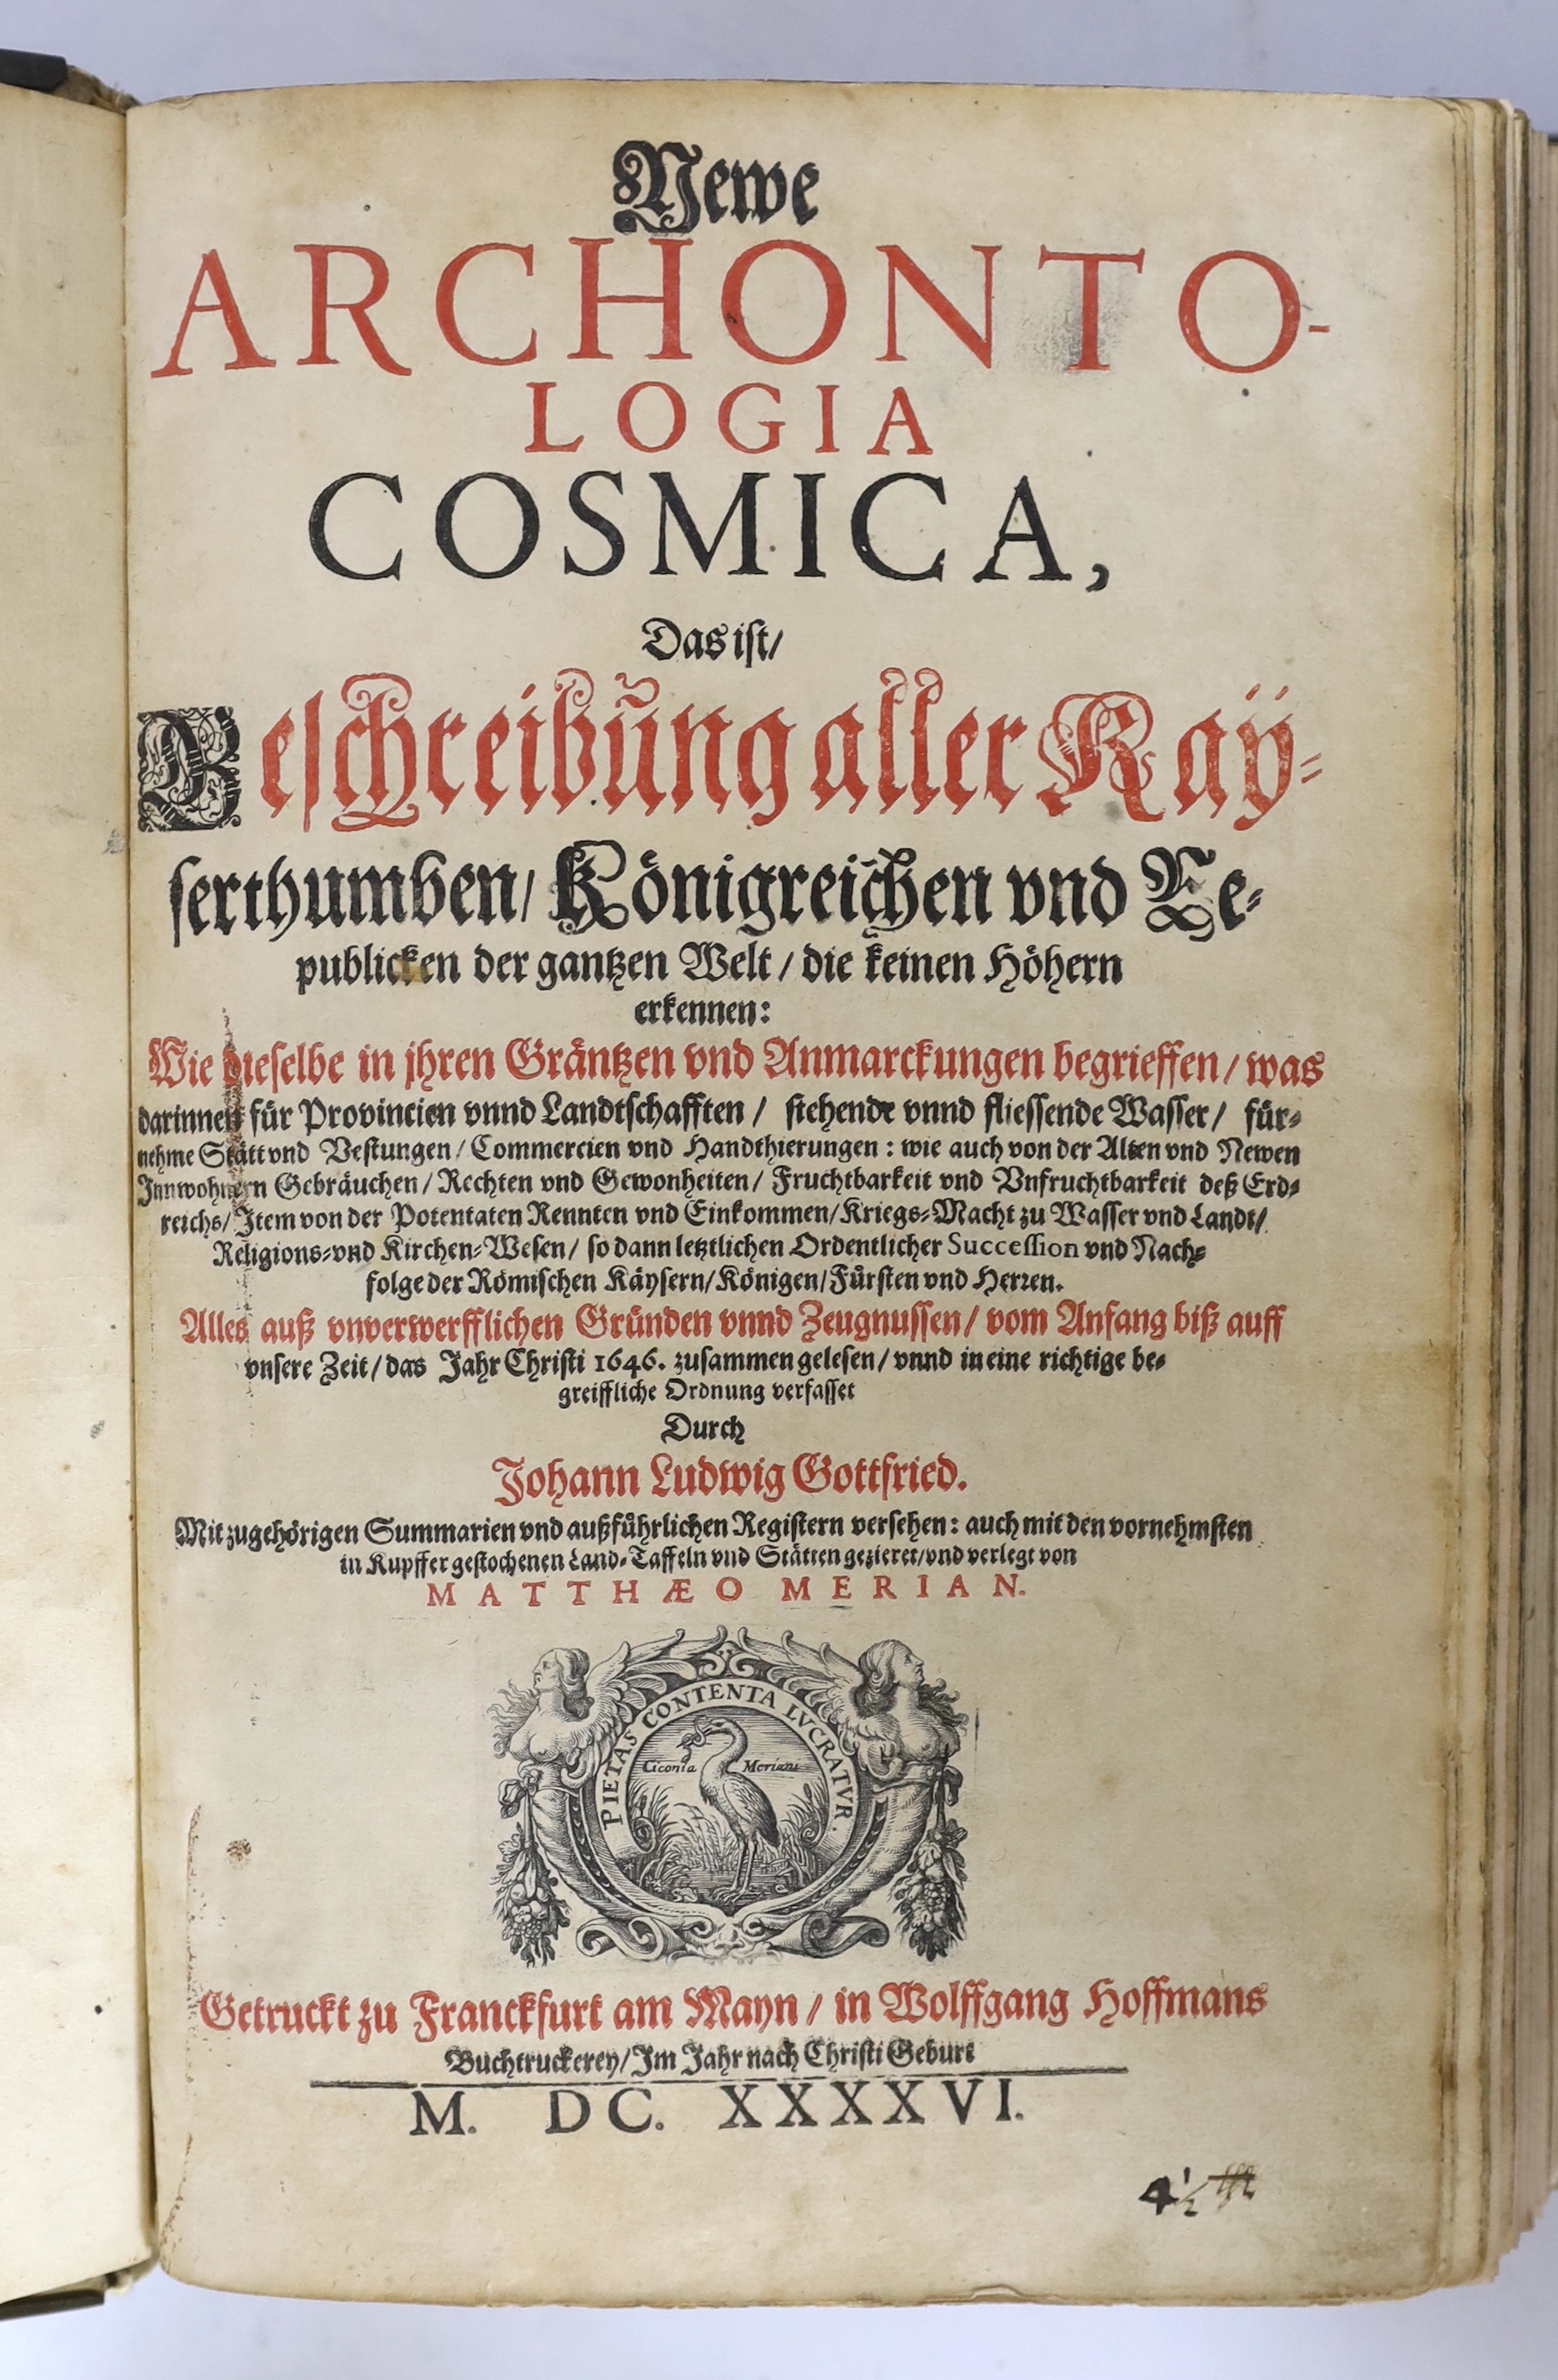 Newe
ARCHONTO-
LOGIA
COSMICA,
Das ist/
Beschreibung aller Kay-
serthumben/ Königreichen vnd Re-
publicken der gantzen Welt / die keinen Höhern
erkennen:
Wie dieselbe in jhren Gräntzen vnd Anmarckungen begrieffen / was
darinnen für Provincien vnnd Landtschafften / stehende vnnd fliessende Wasser / für-
nehme Stätt vnd Vestungen / Commercien vnd Handthierungen : wie auch von der Alten vnd Newen
Innwohnern Gebräuchen / Rechten vnd Gewonheiten / Fruchtbarkeit vnd Vnfruchtbarkeit deß Erd-
reichs / Item von der Potentaten Rennten vnd Einkommen / Kriegs-Macht zu Wasser vnd Landt /
Religions- vnd Kirchen-Wesen / so dann letztlichen Ordentlicher Succession vnd Nach-
folge der Römischen Käysern / Königen / Fürsten vnd Herren.
Alles auß vnverwerfflichen Gründen vnnd Zeugnussen / vom Anfang biß auff
vnsere Zeit / das Jahr Christi 1646. zusammen gelesen / vnnd in eine richtige be-
greiffliche Ordnung verfasset
Durch
Johann Ludwig Gottfried.
Mit zugehörigen Summarien vnd außführlichen Registern versehen : auch mit den vornehmsten
in Kupffer gestochenen Land-Taffeln vnd Stätten gezieret / vnd verlegt von
MATTHÆO MERIAN.
PIETAS CONTENTA LVCRATVR.
Ciconia Meriani
Getruckt zu Franckfurt am Mayn / in Wolffgang Hoffmans
Buchtruckerey / Im Jahr nach Christi Geburt
M. DC. XXXXVI.
4 1/2